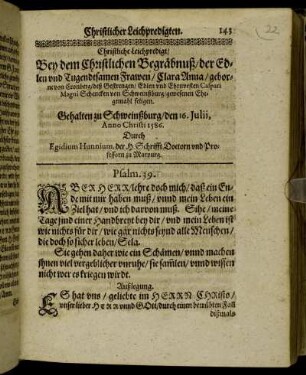 Christlicher Leichpredigten. 143
22
Christliche Leichpredigt/
Bey dem Christlichen Begräbnuß/der Ed-
len vnd Tugendtsamen Frawen / Clara Anna/ gebor-
ne von Cronberg/deß Gestrengen/ Edlen vnd Ehrnvesten Caspari
Magni Schencken von Schweinßburg gewesenen Ehe-
gemahl seligen.
Gehalten zu Schweinßburg/den 16. Julii,
Anno Christi 1586.
Durch
Egidium Hunnium, der H. Schrifft Doctorn vnd Pro-
fessorn zu Marpurg.
Psalm. 39.
ABER HERR/lehre doch mich/ daß ein En-
de mit mir haben muß/ vnnd mein Leben ein
Ziel hat/ vnd ich darvon muß. Sihe/ meine
Tage sind einer Handbreit bey dir/ vnd mein Leben ist
wie nichts für dir/ wie gar nichts seynd alle Menschen/
die doch so sicher leben/ Sela.
Sie gehen daher wie ein Schämen/ vnnd machen
ihnen viel vergeblicher vnruhe/ sie samlen/ vnnd wissen
nicht wer es kriegen wirdt.
Außlegung.
ES hat vns/ geliebte im HERRN Christo/
vnser lieber HERR vnnd GOtt/durch einen betrübten Fall
dißmals